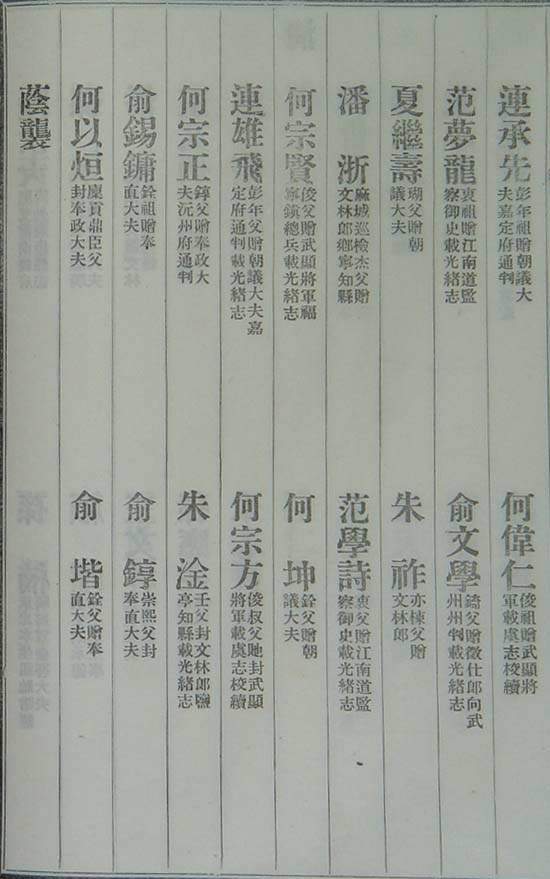 連承先 彭年祖贈朝議大夫嘉定府通判
何偉仁 俊祖贈武顯將軍載虞志校續
范夢龍 衷祖贈江南道監察御史載光緒志
俞文學 鑄父贈徵仕郎向武州州判載光緒志
夏繼壽 瑚父贈朝議大夫
朱祚 亦棟父贈文林郎
潘浙 麻城巡檢杰父贈文林郎鄉寧知縣
范學詩 衷父贈江南道監察御史載光緒志
何宗賢 俊父贈武顯將軍福寧鎮總兵載光緒志
何坤 銓父贈朝議大夫
連雄飛 彭年父贈朝議大夫嘉定府通判載光緒志
何宗方 俊叔父貤封武顯將軍載虞志校續
何宗正 錞父贈奉政大夫沅州府通判
朱淦 壬父封文林郎鹽亭知縣載光緒志
俞錫鏞 銓祖贈奉直大夫
俞錞 崇熙父封奉直大夫
何以烜 廩貢鼎臣父封奉政大夫
俞堦 銓父贈奉直大夫
蔭襲